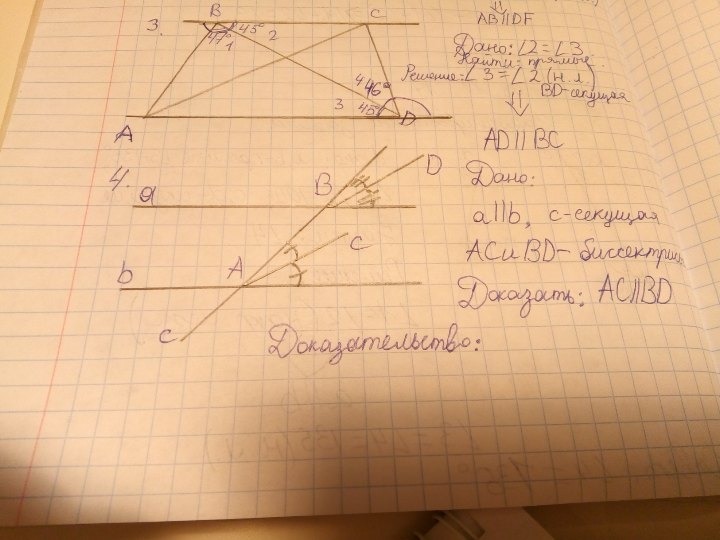 AB || DF
3.
B
45°
2
47°
1
C
Дано: ∠2 = ∠3
Найти: прямые
Решение: ∠3 = ∠2 (н.л.)
BD - секущая
4
46°
3
45°
D
A
AD || BC
4.
a
B
D
Дано:
a||b, c - секущая
b
A
C
AC и BD - биссектрисы
Доказать: AC||BD
c
Доказательство: